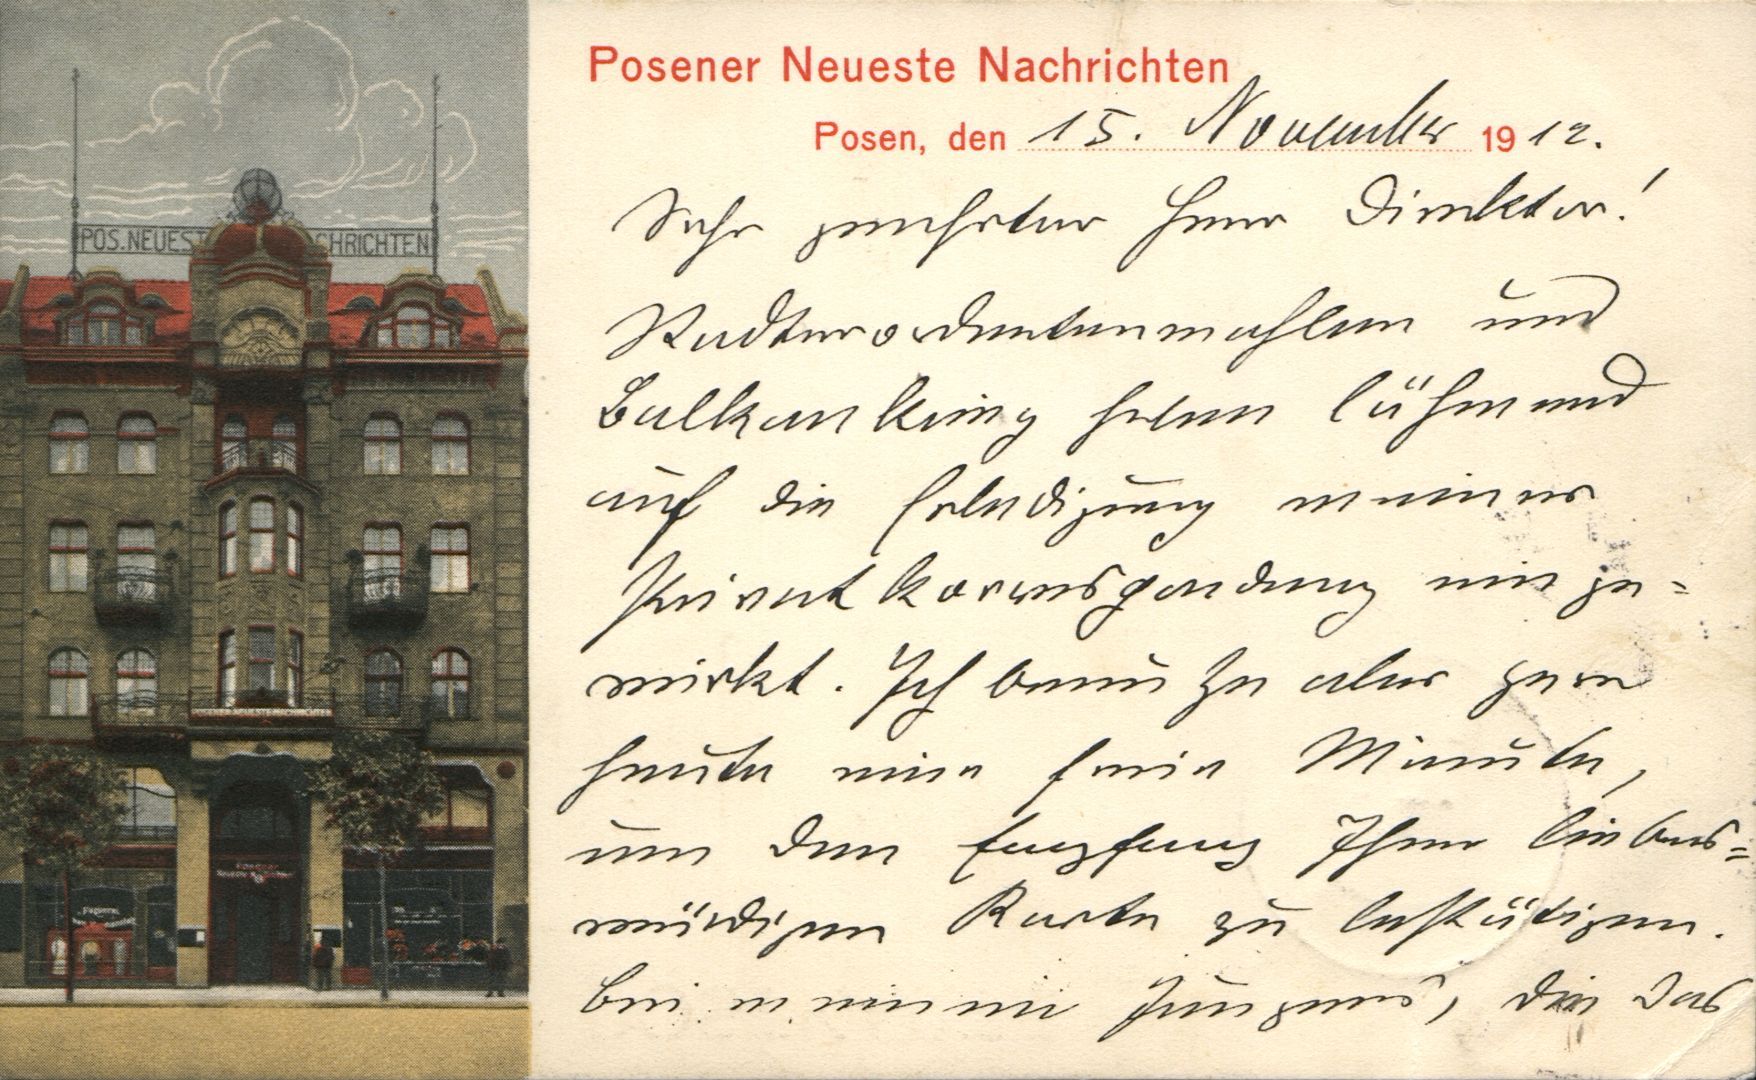 POS. NEUESTE NACHRICHTEN
Posener Neueste Nachrichten
Posen, den 15. November 1912.
Sehr geehrter Herr Direktor!
Stadtverordnetenwahlen und
Balkankrieg haben lähmend
auf die Erledigung meiner
Privatkorrespondenz einge=
wirkt. Ich benutze aber gern
heute eine freie Minute,
um den Empfang Ihrer liebens=
würdigen Karte zu bestätigen.
Bei meinen Jungens, die das